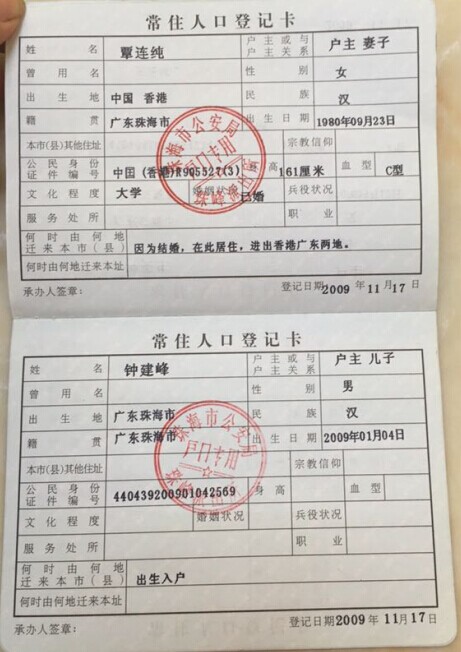 常住人口登记卡
姓名 覃连纯 户主或与户主关系 户主 妻子
曾用名 性别 女
出生地 中国 香港 民族 汉
籍贯 广东珠海市 出生日期 1980年09月23日
本市(县)其他住址 宗教信仰
公民身份证件编号 中国(香港)R905527(3) 身高 161厘米 血型 C型
文化程度 大学 婚姻状况 已婚 兵役状况
服务处所 职业
何时由何地迁来本市(县) 因为结婚，在此居住，进出香港广东两地。
何时由何地迁来本址
承办人签章： 登记日期2009年11月17日
珠海市公安局
户口专用
常住人口登记卡
姓名 钟建峰 户主或与户主关系 户主 儿子
曾用名 性别 男
出生地 广东珠海市 民族 汉
籍贯 广东珠海市 出生日期 2009年01月04日
本市(县)其他住址 宗教信仰
公民身份证件编号 440439200901042569 身高 血型
文化程度 婚姻状况 兵役状况
服务处所 职业
何时由何地迁来本市(县) 出生入户
何时由何地迁来本址
承办人签章： 登记日期2009年11月17日
珠海市公安局
户口专用